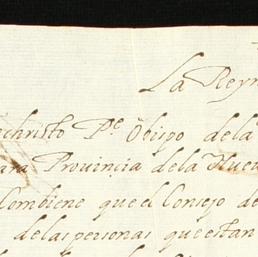 La Reyn
echristo P.e Obispo dela
ara Prouincia dela Nuea
Combiene que el Consejo de
delas personas que estan